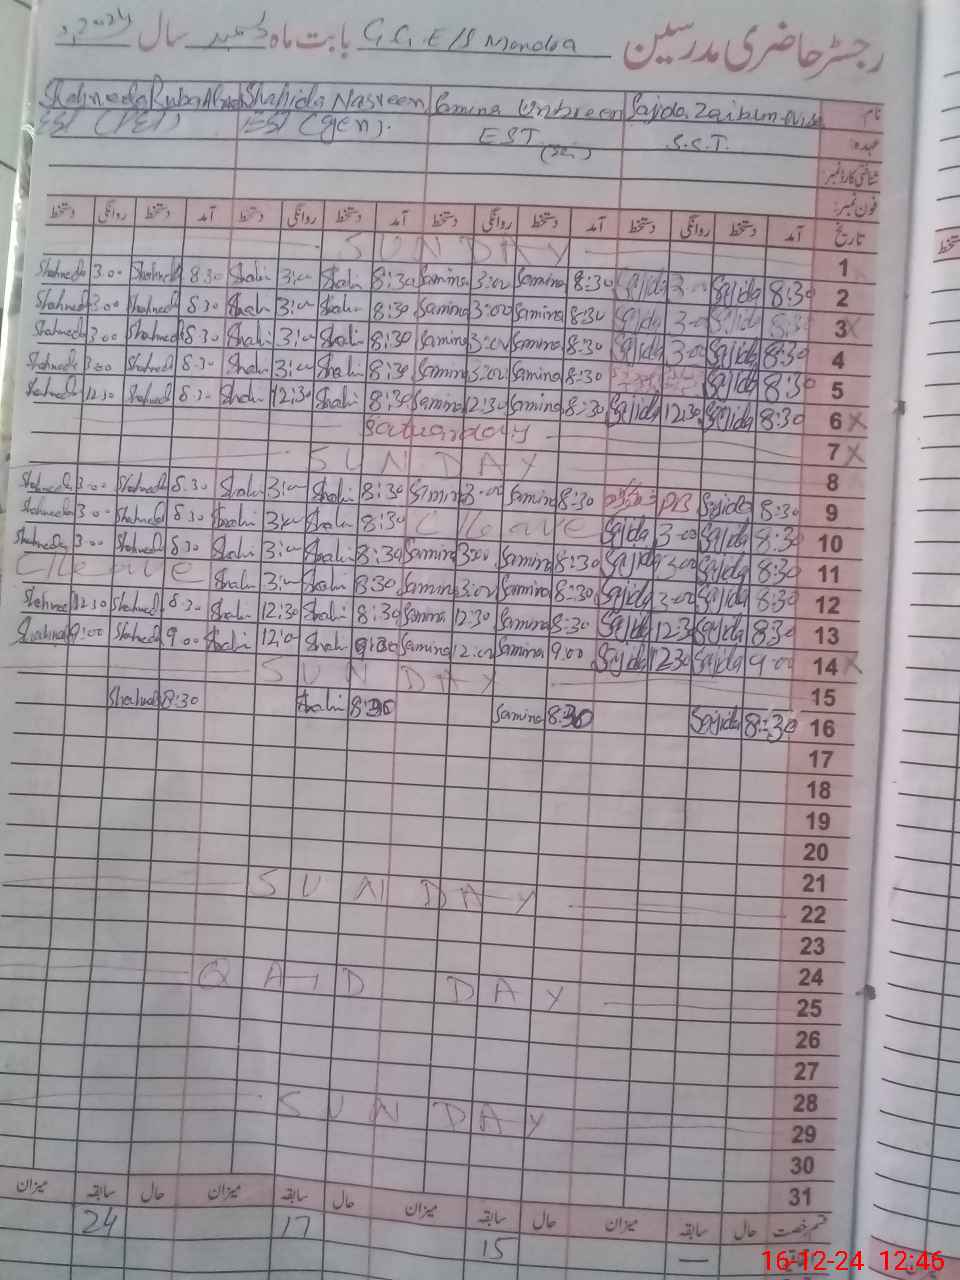 رجسٹر حاضری مدرسین G.G.E/S Mandoa بابت ماہ دسمبر سال 2024
نام Sajda Zaibun-nisa Samina Unbreen Shahida Nasreen Shahneda Ruba
عہدہ: S.S.T. EST (sc.) EST (gen). EST (PET)
شناختی کارڈ نمبر:
فون نمبر:
تاریخ آمد دستخط روانگی دستخط آمد دستخط روانگی دستخط آمد دستخط روانگی دستخط آمد دستخط روانگی دستخط
1 SUNDAY
2 8:30 Sajida 3-00 Sajida 8:30 Samina 3:00 Samina 8:30 Shahi 3:00 Shahi 8.30 Shahneda 3.00 Shahneda
3 8:30 Sajida 3-00 Sajida 8:30 Samina 3:00 Samina 8:30 Shahi 3:00 Shahi 8.30 Shahneda 3.00 Shahneda
4 8:30 Sajida 3-00 Sajida 8:30 Samina 3:00 Samina 8:30 Shahi 3:00 Shahi 8.30 Shahneda 3.00 Shahneda
5 8:30 Sajida 8:30 Samina 3:00 Samina 8:30 Shahi 3:00 Shahi 8.30 Shahneda 3.00 Shahneda
6 8:30 Sajida 12:30 Sajida 8:30 Samina 12:30 Samina 8:30 Shahi 12:30 Shahi 8.30 Shahneda 12.30 Shahneda
7 Satuarday
8 SUNDAY
9 8:30 Sajida 8:30 Samina 3-00 Samina 8:30 Shahi 3:00 Shahi 8.30 Shahneda 3.00 Shahneda
10 8:30 Sajida 3-00 Sajida C/leave 8:30 Shahi 3:00 Shahi 8.30 Shahneda 3.00 Shahneda
11 8:30 Sajida 3-00 Sajida 8:30 Samina 3:00 Samina 8:30 Shahi 3:00 Shahi 8.30 Shahneda 3.00 Shahneda
12 8:30 Sajida 3-00 Sajida 8:30 Samina 3:00 Samina 8:30 Shahi 3:00 Shahi C/leave
13 8:30 Sajida 12:30 Sajida 8:30 Samina 12:30 Samina 8:30 Shahi 12:30 Shahi 8.30 Shahneda 12.30 Shahneda
14 9.00 Sajida 1230 Sajida 9.00 Samina 12:00 Samina 9:00 Shahi 12:0 Shahi 9.00 Shahneda 9:00 Shahneda
15 SUNDAY
16 8:30 Sajida 8:30 Samina 8:30 Shahi 8:30 Shahneda
17
18
19
20
21
22 SUNDAY
23
24
25 QAID DAY
26
27
28
29 SUNDAY
30
31
قسم رخصت حال سابقہ میزان حال سابقہ میزان حال سابقہ میزان حال سابقہ میزان
اتفاقیہ — 15 17 24
16-12-24 12:46